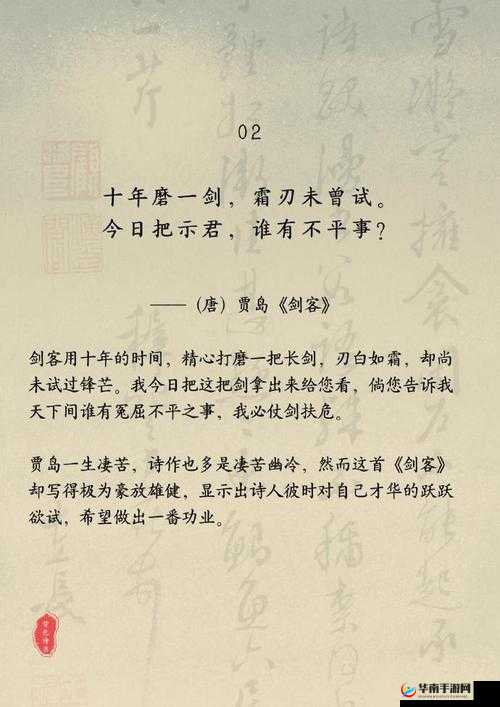 02
十年磨一剑，霜刃未曾试。
今日把示君，谁有不平事？
——（唐）贾岛《剑客》
剑客用十年的时间，精心打磨一把长剑，刃白如霜，却尚
未试过锋芒。我今日把这把剑拿出来给您看，倘您告诉我
天下间谁有冤屈不平之事，我必仗剑扶危。
贾岛一生凄苦，诗作也多是凄苦幽冷，然而这首《剑客》
却写得极为豪放雄健，显示出诗人彼时对自己才华的跃跃
欲试，希望做出一番功业。
华南手游网